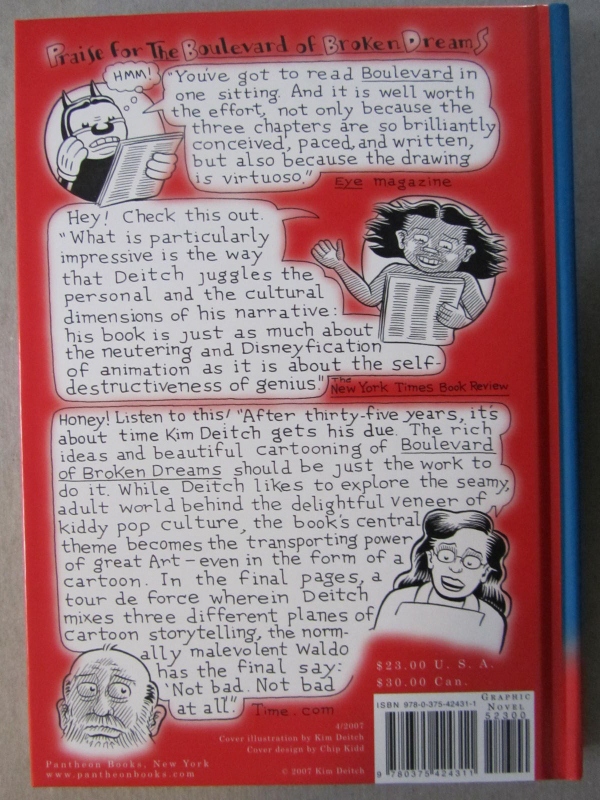 Praise for The Boulevard of Broken Dreams
HMM!
"You've got to read Boulevard in
one sitting. And it is well worth
the effort, not only because the
three chapters are so brilliantly
conceived, paced, and written,
but also because the drawing
is virtuoso."
Eye magazine
Hey! Check this out.
"What is particularly
impressive is the way
that Deitch juggles the
personal and the cultural
dimensions of his narrative:
his book is just as much about
the neutering and Disneyfication
of animation as it is about the self-
destructiveness of genius"
The New York Times Book Review
Honey! Listen to this! "After thirty-five years, it's
about time Kim Deitch gets his due. The rich
ideas and beautiful cartooning of Boulevard
of Broken Dreams should be just the work to
do it. While Deitch likes to explore the seamy,
adult world behind the delightful veneer of
kiddy pop culture, the book's central
theme becomes the transporting power
of great Art – even in the form of a
cartoon. In the final pages, a
tour de force wherein Deitch
mixes three different planes of
cartoon storytelling, the norm-
ally malevolent Waldo
has the final say:
'Not bad. Not bad
at all.'"
Time.com
$23.00 U. S. A.
$30.00 Can.
Graphic
Novel
ISBN 978-0-375-42431-1
52300
9 780375 424311
4/2007
Cover illustration by Kim Deitch
Cover design by Chip Kidd
Pantheon Books, New York
www.pantheonbooks.com
© 2007 Kim Deitch